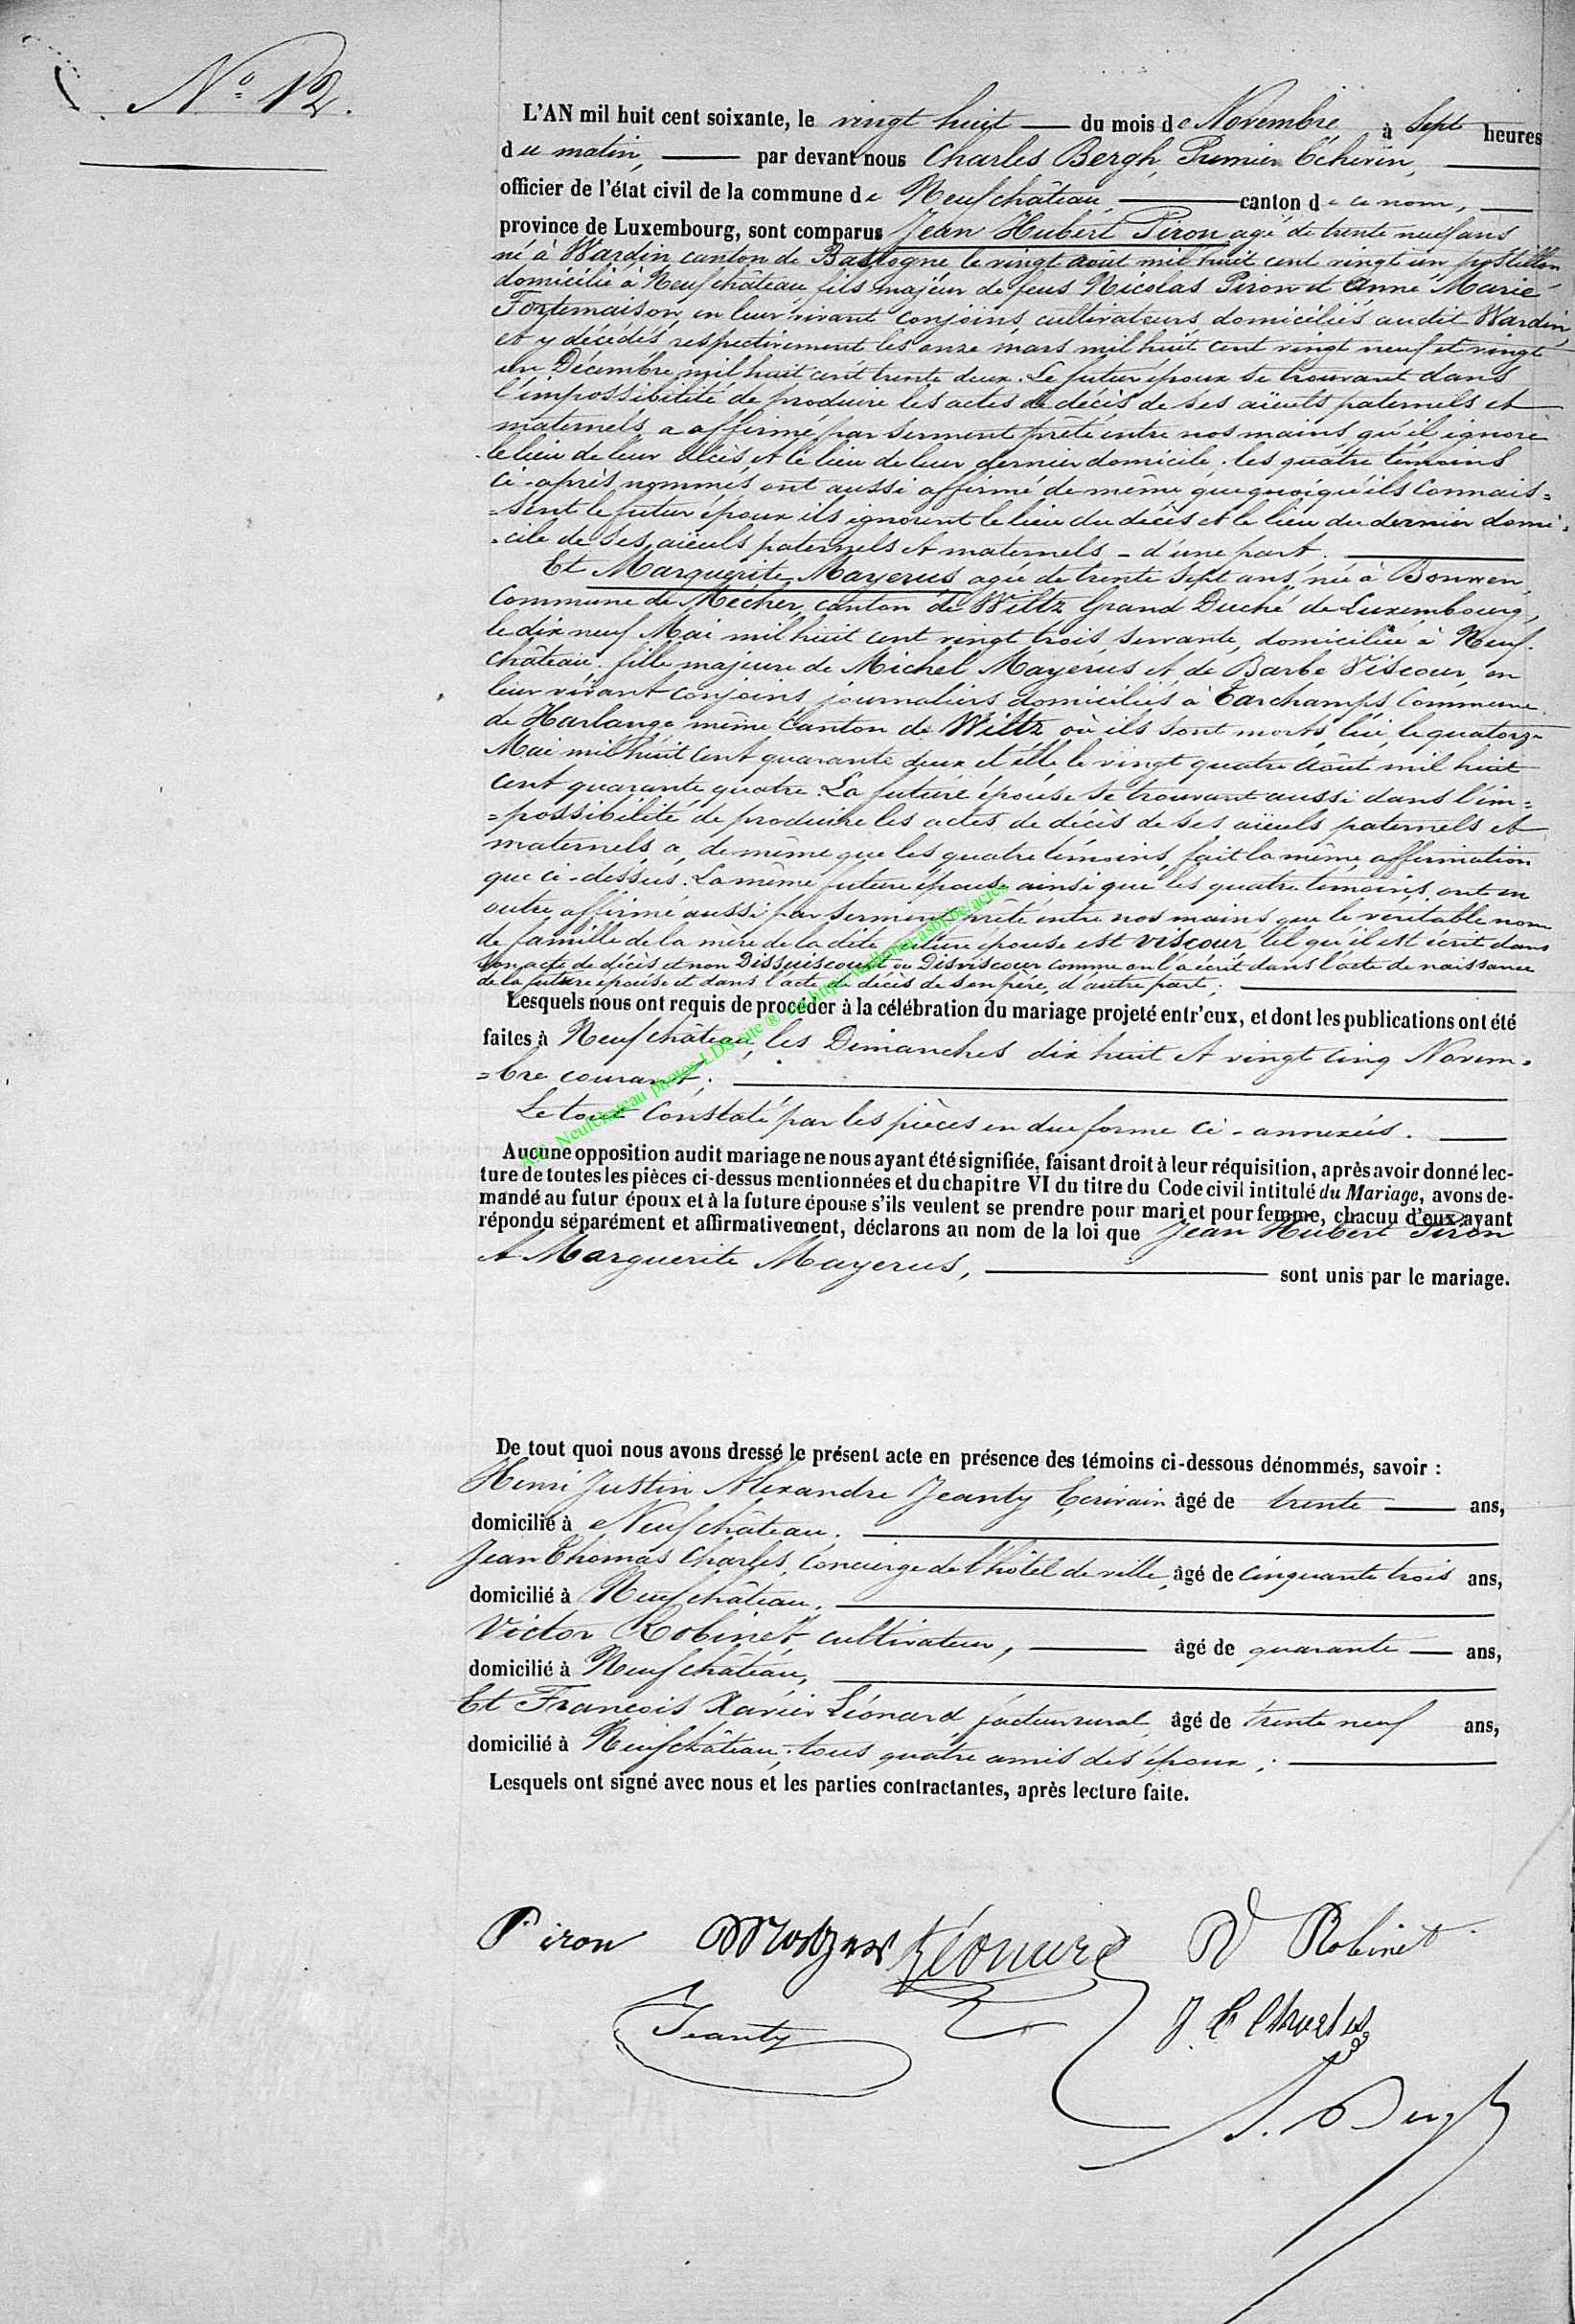 N° 12.
L'AN mil huit cent soixante, le vingt huit du mois de Novembre à Sept heures
du matin, par devant nous Charles Bergh, Premier Échevin,
officier de l'état civil de la commune de Neufchâteau, canton de ce nom,
province de Luxembourg, sont comparus Jean Hubert Piron agé de trente neuf ans
né à Wardin canton de Bastogne le vingt août mil huit cent vingt un, postillon
domicilié à Neufchâteau fils majeur de feus Nicolas Piron et Anne Marie
Fortemaison, en leur vivant conjoins cultivateurs domiciliés audit Wardin
et y décédés respectivement les onze mars mil huit cent vingt neuf et vingt
un Décembre mil huit cent trente deux. Le futur époux se trouvant dans
l'impossibilité de produire les actes de décès de ses aïeuls paternels et
maternels a affirmé par serment prêté entre nos mains qu'il ignore
le lieu de leur décès et le lieu de leur dernier domicile. les quatre témoins
ci-après nommés ont aussi affirmé de même que quoiqu'ils connais=
=sent le futur époux ils ignorent le lieu du décès et le lieu du dernier domi=
=cile de ses aïeuls paternels et maternels - d'une part.
Et Marguerite Mayerus agée de trente sept ans, née à Bonwen,
Commune de Mécher, canton de Wiltz Grand Duché de Luxembourg,
le dix neuf Mai mil huit cent vingt trois, servante, domiciliée à Neuf-
château. fille majeure de Michel Mayerus et de Barbe Viscour, en
leur vivant conjoins journaliers domiciliés à Tarchamps Commune
de Harlange même Canton de Wiltz où ils sont morts, lui, le quatorze
Mai mil huit cent quarante deux et elle le vingt quatre août mil huit
cent quarante quatre. La future épouse se trouvant aussi dans l'im=
=possibilité de produire les actes de décès de ses aïeuls paternels et
maternels a, de même que les quatre témoins, fait la même affirmation
que ci-dessus. La même future épouse ainsi que les quatre témoins ont en
outre affirmé aussi par serment prêté entre nos mains que le véritable nom
de famille de la mère de la dite future épouse est Viscour tel qu'il est écrit dans
son acte de décès et non Dissuiscourt ou Disviscour comme on l'a écrit dans l'acte de naissance
de la future épouse et dans l'acte de décès de son père, d'autre part;
Lesquels nous ont requis de procéder à la célébration du mariage projeté entr'eux, et dont les publications ont été
faites à Neufchâteau, les Dimanches dix huit et vingt cinq Novem=
=bre courant;
Le tout Constaté par les pièces en due forme ci-annexées.
Aucune opposition audit mariage ne nous ayant été signifiée, faisant droit à leur réquisition, après avoir donné lec-
ture de toutes les pièces ci-dessus mentionnées et du chapitre VI du titre du Code civil intitulé du Mariage, avons de-
mandé au futur époux et à la future épouse s'ils veulent se prendre pour mari et pour femme, chacuu d'eux ayant
répondu séparément et affirmativement, déclarons au nom de la loi que Jean Hubert Piron
et Marguerite Mayerus, sont unis par le mariage.
De tout quoi nous avons dressé le présent acte en présence des témoins ci-dessous dénommés, savoir :
Henri Justin Alexandre Jeanty Écrivain âgé de trente ans,
domicilié à Neufchâteau.
Jean Thomas Charles, Concierge de l'hôtel de ville, âgé de cinquante trois ans,
domicilié à Neufchâteau.
Victor Robinet, cultivateur, âgé de quarante ans,
domicilié à Neufchâteau,
Et François Xavier Léonard, facteur rural, âgé de trente neuf ans,
domicilié à Neufchâteau; tous quatre amis des époux;
Lesquels ont signé avec nous et les parties contractantes, après lecture faite.
Piron Léonard V Robinet
Jeanty J. T. Charles
Bergh
A.E. Neufchateau photos LDS site ® via http://wallonia-asbl.be/actes